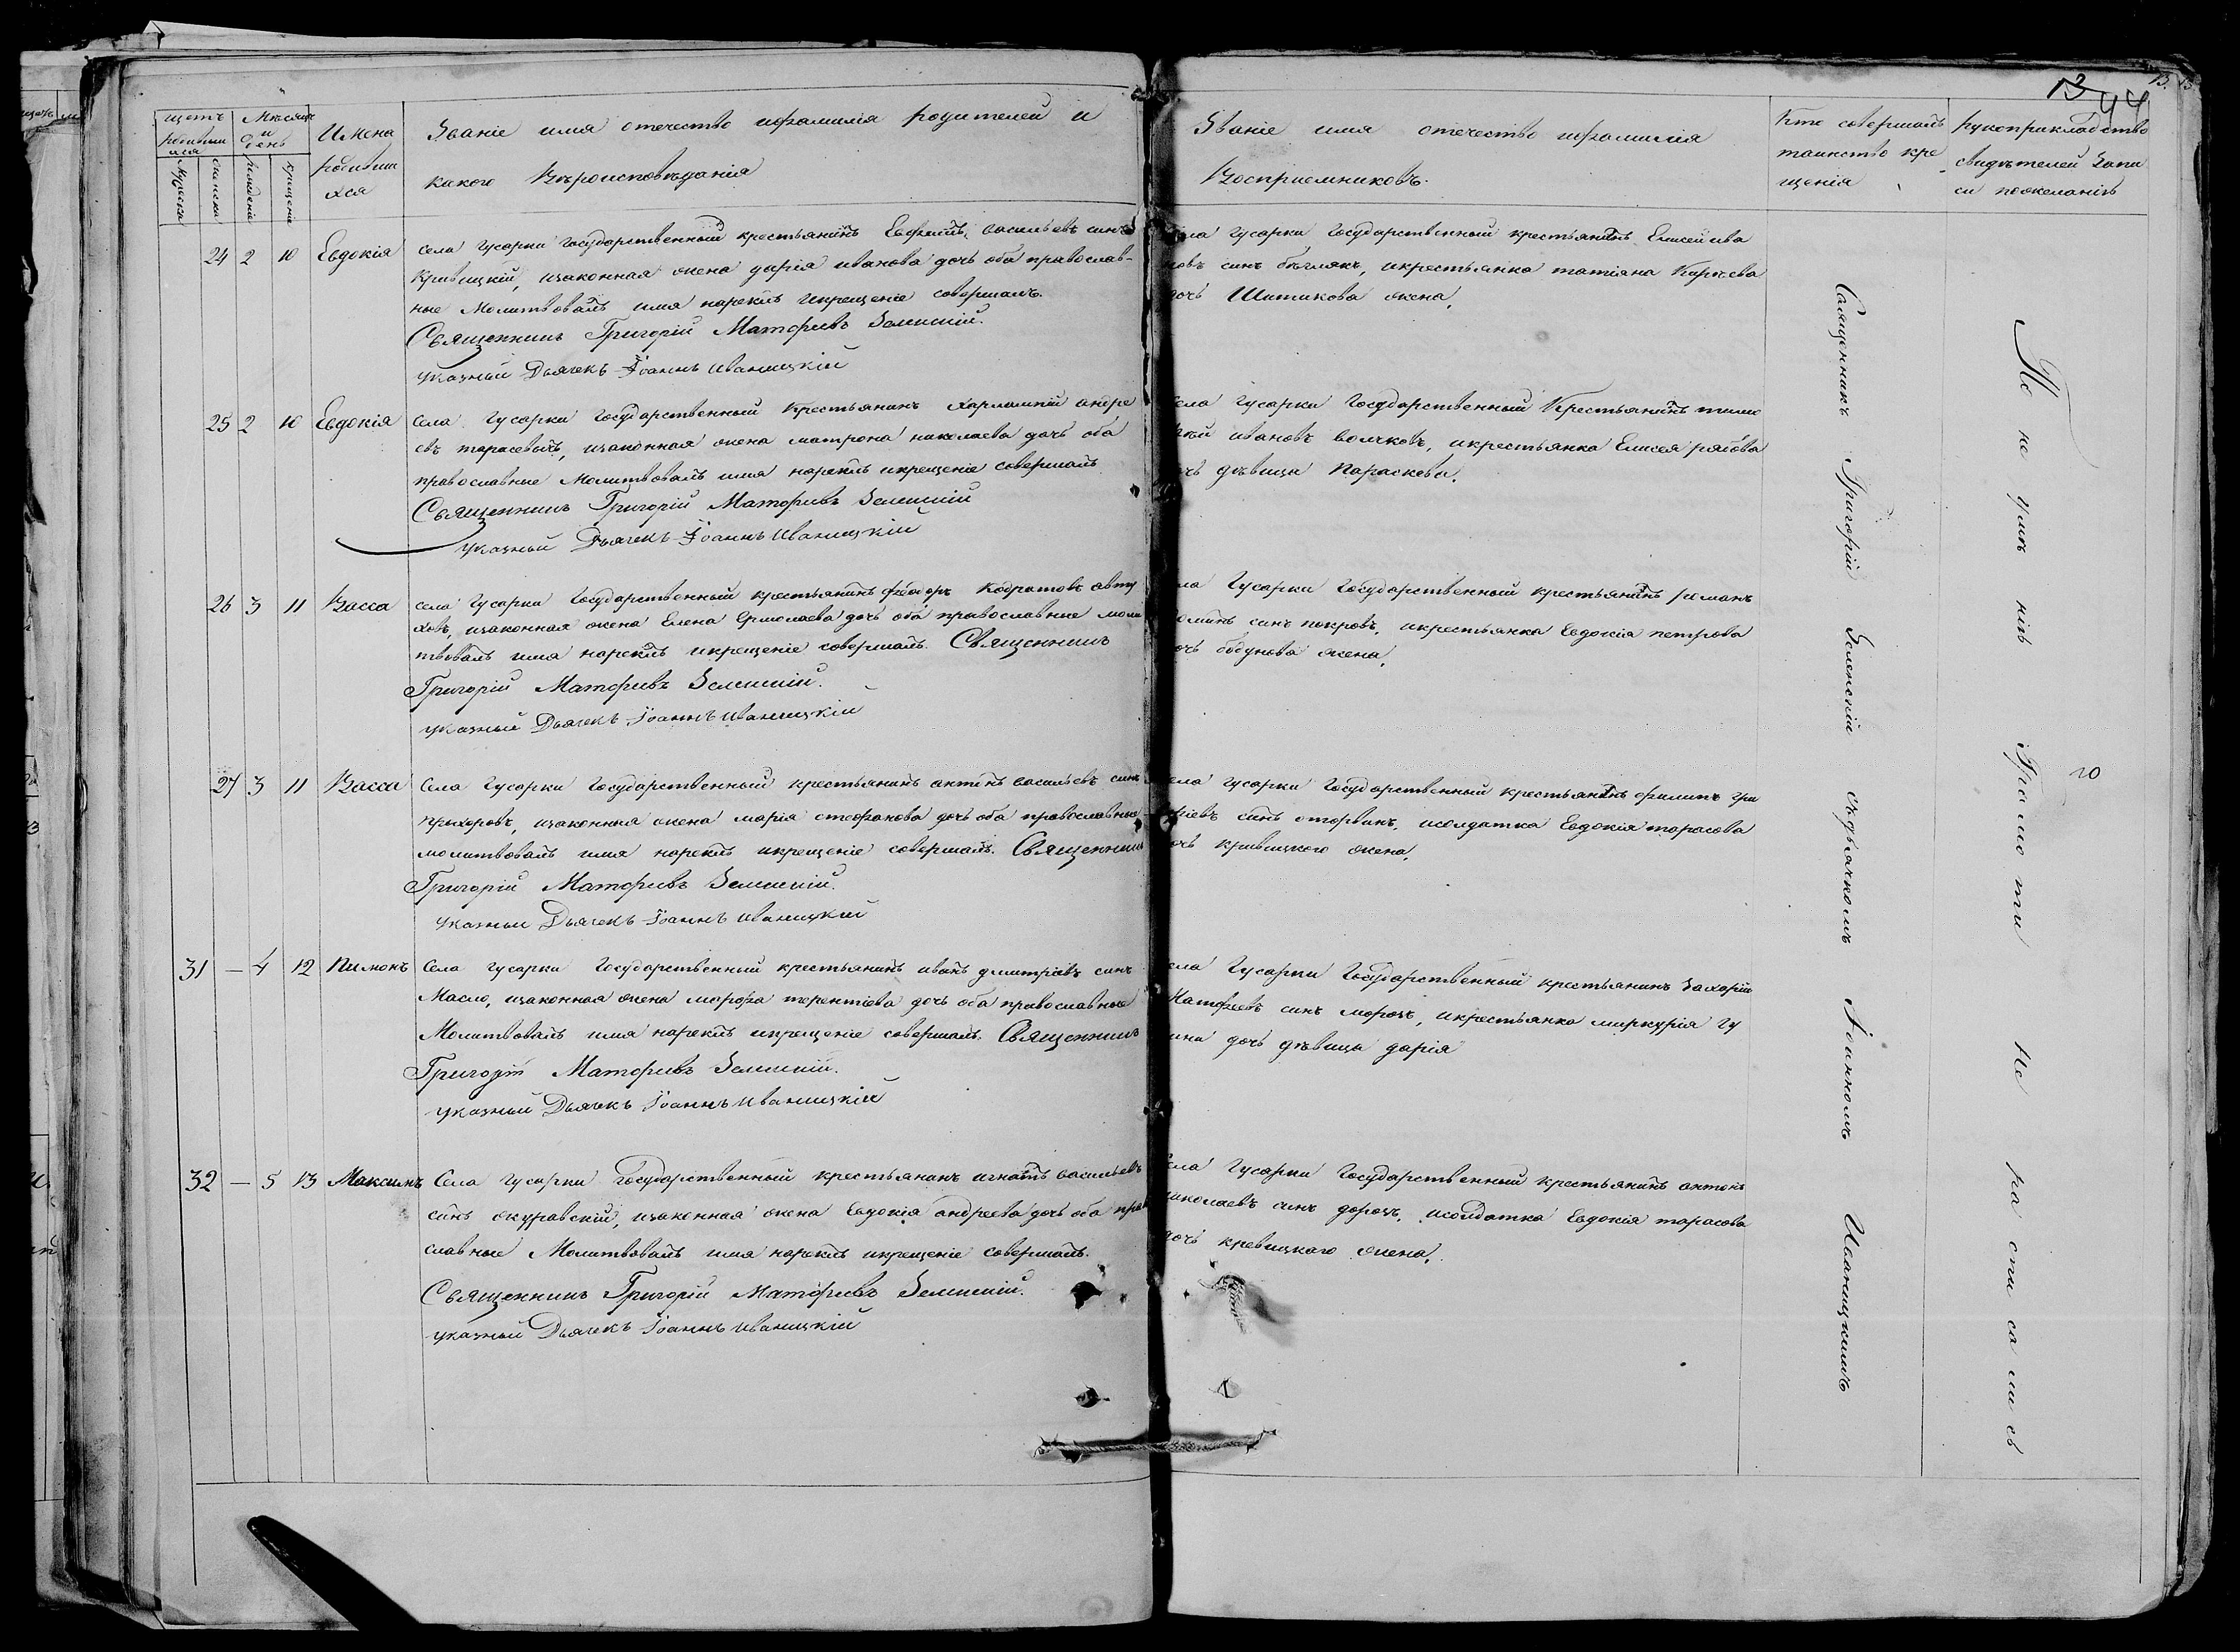 13
44
щетъ
родивши
хся
Мужеска
женска
Мѣсяцъ
и
день
рожденіе
Крещеніе
Имена
родивши
хся
Званіе имя отечество ифамилія родителей и
какого Вѣроисповѣданія
Званіе имя отечество ифамилія
Восприемниковъ.
Кто совершалъ
таинство кре
щенія
рукоприкладство
свидѣтелей Запи
си пожеланію
24 2 10 Евдокія
села Гусарки Государственный крестьянинъ Евфимъ васильевъ синъ
Кривицкій, изаконная жена дарія иванова дочь оба православ-
ные Молитвовалъ имя нарекъ икрещеніе совершалъ.
Священникъ Григорій Матфиевъ Зеленскій.
указный Дьячекъ Іоаннъ Иваницкій
села Гусарки Государственный крестьянинъ Елисей ива
новъ синъ бѣглякъ, икрестьянка татіана Кирѣева
дочь Шитикова жена,
25 2 10 Евдокія
Села Гусарки Государственный Крестьянинъ Харлампій андре
евъ тарасевычъ, изаконная жена матрона николаева дочь оба
православные Молитвовалъ имя нарекъ икрещеніе совершалъ
Священникъ Григорій Матфиевъ Зеленскій
указный Дьячекъ Іоаннъ Иваницкій
села Гусарки Государственный Крестьянинъ тимо
фѣй ивановъ волчковъ, икрестьянка Елисея рябова
дочь дѣвица Параскева,
26 3 11 Васса
села Гусарки Государственный крестьянинъ феодоръ Кодратовъ авту
ховъ, изаконная жена Елена Ермолаева дочь оба православные моли
твовалъ имя нарекъ икрещеніе совершалъ. Священникъ
Григорій Матфиевъ Зеленскій.
указный Дьячекъ Іоаннъ Иваницкій
села Гусарки Государственный крестьянинъ романъ
фоминъ синъ покровъ, икрестьянка Евдокія петрова
дочь бобунова жена,
27 3 11 Васса
Села Гусарки Государственный крестьянинъ антинъ васильевъ синъ
прыхоровъ, изаконная жена марія стефанова дочь оба православные
молитвовалъ имя нарекъ икрещеніе совершалъ. Священникъ
Григорій Матфиевъ Зеленскій.
указный Дьячекъ Іоаннъ Иваницкій
села Гусарки Государственный крестьянинъ филипъ гри
горіевъ синъ оторвинъ, исолдатка Евдокія тарасова
дочь кривицкого жена,
31 — 4 12 Пимонъ
Села Гусарки Государственный крестьянинъ иванъ дмитріевъ синъ
Масло, изаконная жена марфа терентіева дочь оба православные
Молитвовалъ имя нарекъ икрещеніе совершалъ. Священникъ
Григорій Матфиевъ Зеленскій.
указный Дьячекъ Іоаннъ Иваницкій
села Гусарки Государственный крестьянинъ Захарій
Матфеевъ синъ морозъ, икрестьянка миркурія гу
дочь дѣвица дарія
32 — 5 13 Максимъ
Села Гусарки Государственный крестьянинъ игнатъ васильевъ
синъ журавскій, изаконная жена Евдокія андреева дочь оба право
славные Молитвовалъ имя нарекъ икрещеніе совершалъ.
Священникъ Григорій Матфиевъ Зеленскій.
указный Дьячекъ Іоаннъ Иваницкій
села Гусарки Государственный крестьянинъ антонъ
николаевъ синъ дорошъ, исолдатка Евдокія тарасова
дочь кревицкаго жена,
Священникъ Григорій Зеленскій здьячкомъ Іоанномъ Иваницкимъ
По не умѣ нію Грамоти Не ра спи са ли сь